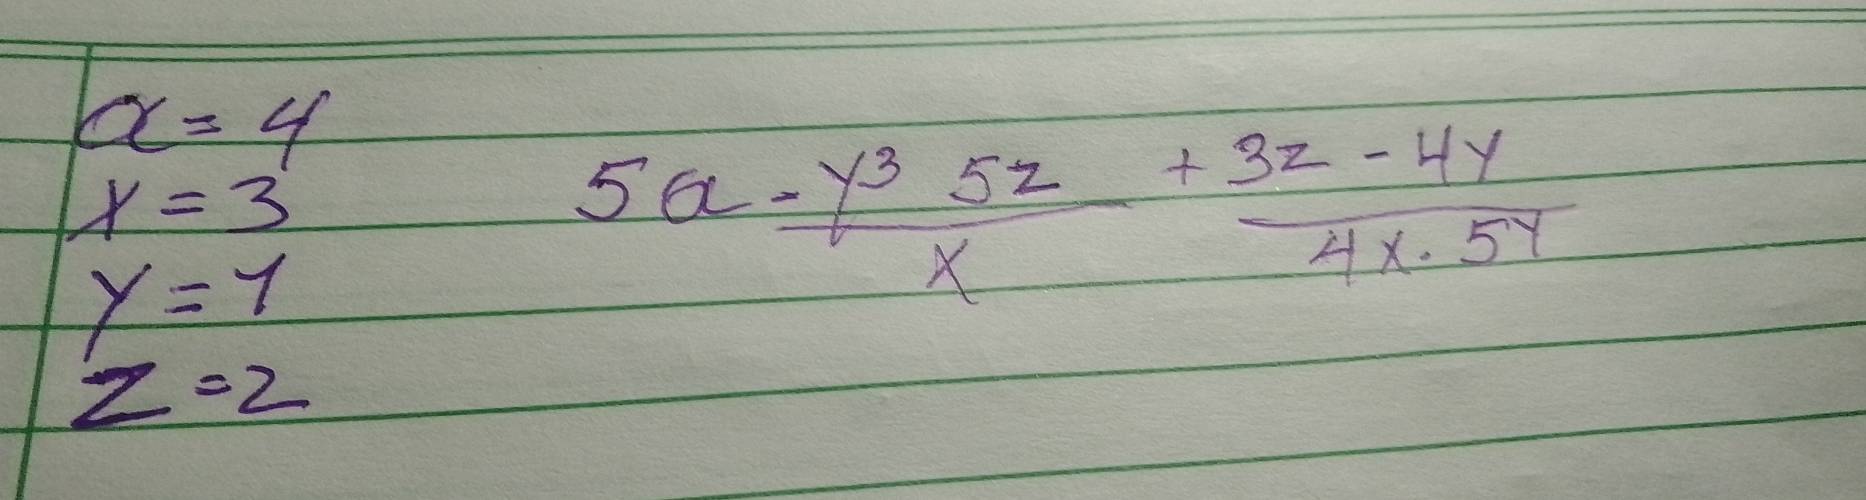 a = 4
x = 3
y = 1
z = 2
5a - y³ 5z + 3z - 4y
x 4x . 5y